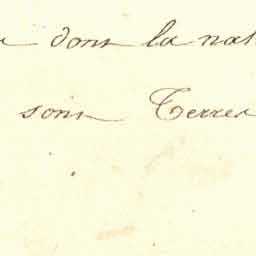 dont la nat
sont Terres